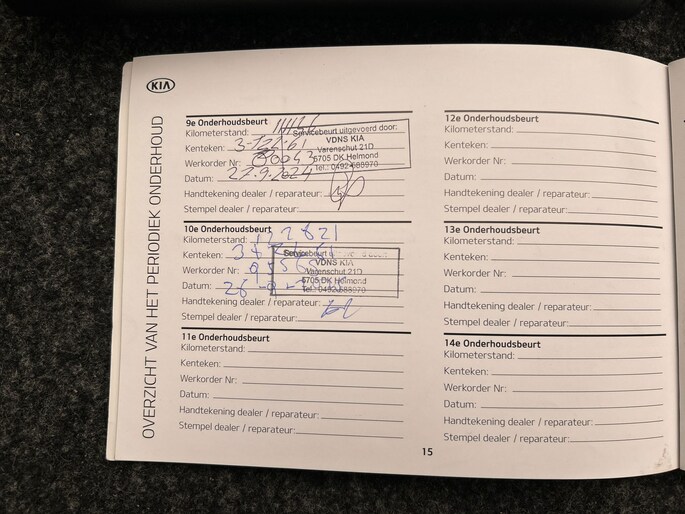 KIA
OVERZICHT VAN HET PERIODIEK ONDERHOUD
9e Onderhoudsbeurt
Kilometerstand:
Kenteken:
Werkorder Nr:
Datum: 27.9.2024
Handtekening dealer / reparateur:
Stempel dealer / reparateur:
Servicebeurt uitgevoerd door:
VDNS KIA
Varenschut 21D
5705 DK Helmond
Tel.: 0492-588970
10e Onderhoudsbeurt
Kilometerstand: 122821
Kenteken:
Werkorder Nr:
Datum:
Handtekening dealer / reparateur:
Stempel dealer / reparateur:
VDNS KIA
Varenschut 21D
5705 DK Helmond
Tel.: 0492-588970
11e Onderhoudsbeurt
Kilometerstand:
Kenteken:
Werkorder Nr:
Datum:
Handtekening dealer / reparateur:
Stempel dealer / reparateur:
12e Onderhoudsbeurt
Kilometerstand:
Kenteken:
Werkorder Nr:
Datum:
Handtekening dealer / reparateur:
Stempel dealer / reparateur:
13e Onderhoudsbeurt
Kilometerstand:
Kenteken:
Werkorder Nr:
Datum:
Handtekening dealer / reparateur:
Stempel dealer / reparateur:
14e Onderhoudsbeurt
Kilometerstand:
Kenteken:
Werkorder Nr:
Datum:
Handtekening dealer / reparateur:
Stempel dealer / reparateur:
15